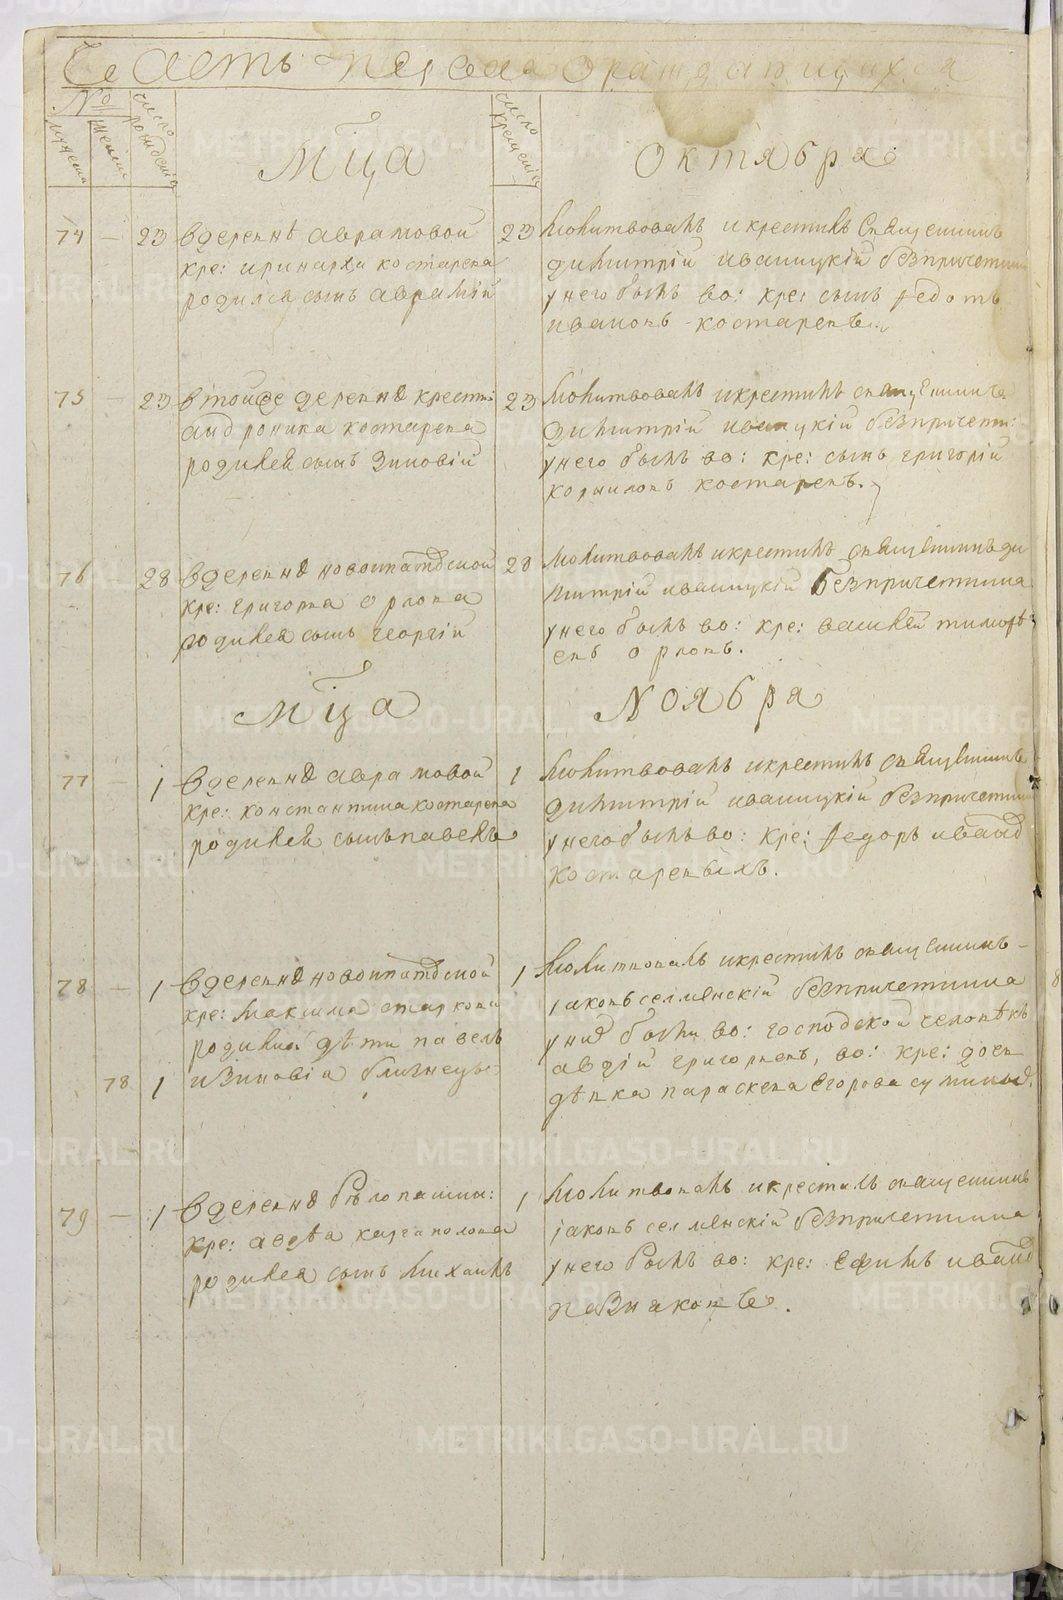 Часть первая о раждающихся
№
мужеска
женска
число рождения
Мца
число крещения
Октября
74 — 23 В деревнѣ аврамовой
кре: иринарха костарева
родился сынъ аврамiй
23 Молитвовалъ и крестилъ Священникъ
димитрiй иваницкiй безпричетника
у него былъ во: кре: сынъ Федотъ
ивановъ костаревъ.
75 — 23 В тойже деревнѣ крестья:
андроника костарева
родился сынъ Зиновiй
23 Молитвовалъ и крестилъ священникъ
Димитрiй иваницкiй безпричетни:
у него былъ во: кре: сынъ григорiй
корниловъ костаревъ.
76 — 28 В деревнѣ новоипатовской
кре: григорья орлова
родился сынъ георгiй
28 Молитвовалъ и крестилъ священникъ ди
митрiй иваницкiй безпричетника
у него былъ во: кре: василей тимофѣ
евъ орловъ.
Мца Ноября
77 — 1 В деревнѣ аврамовой
кре: константина костарева
родился сынъ павелъ
1 Молитвовалъ и крестилъ священникъ
димитрiй иваницкiй безпричетника
у него былъ во: кре: Федоръ ивановъ
костаревыхъ.
78 — 1 В деревнѣ новоипатовской
кре: Максима старкова
родились дѣти павелъ
78 1 и Зиновiа близнецы
1 Молитвовалъ и крестилъ священникъ
iаковъ селменскiй безпричетника
у них были во: господской человѣкъ
авдiй григорьевъ, во: кре: доч
дѣвка параскева Егорова
79 — 1 В деревнѣ бѣлопашин:
кре: авдѣа каргаполова
родился сынъ Михаилъ
1 Молитвовалъ и крестилъ священникъ
iаковъ селменскiй безпричетника
у него былъ во: кре: Ефимъ ивановъ